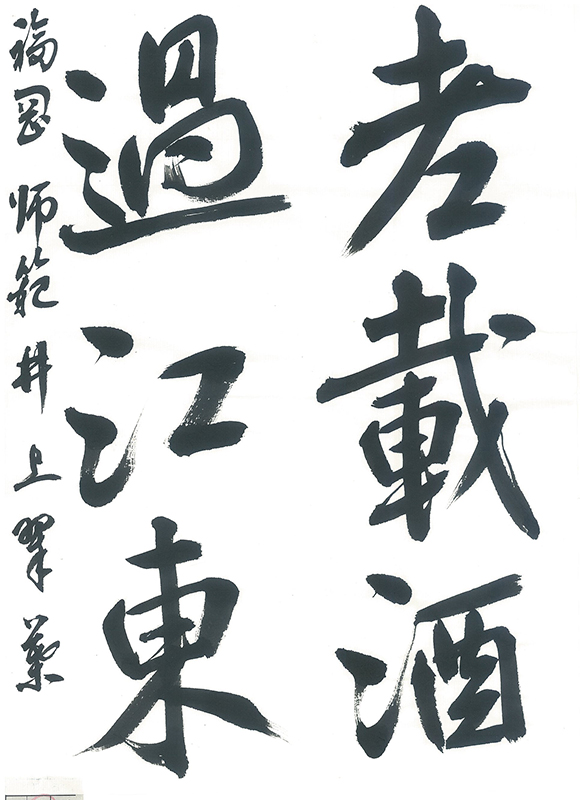 老載酒
過江東
福岡 师範 井上翠葉